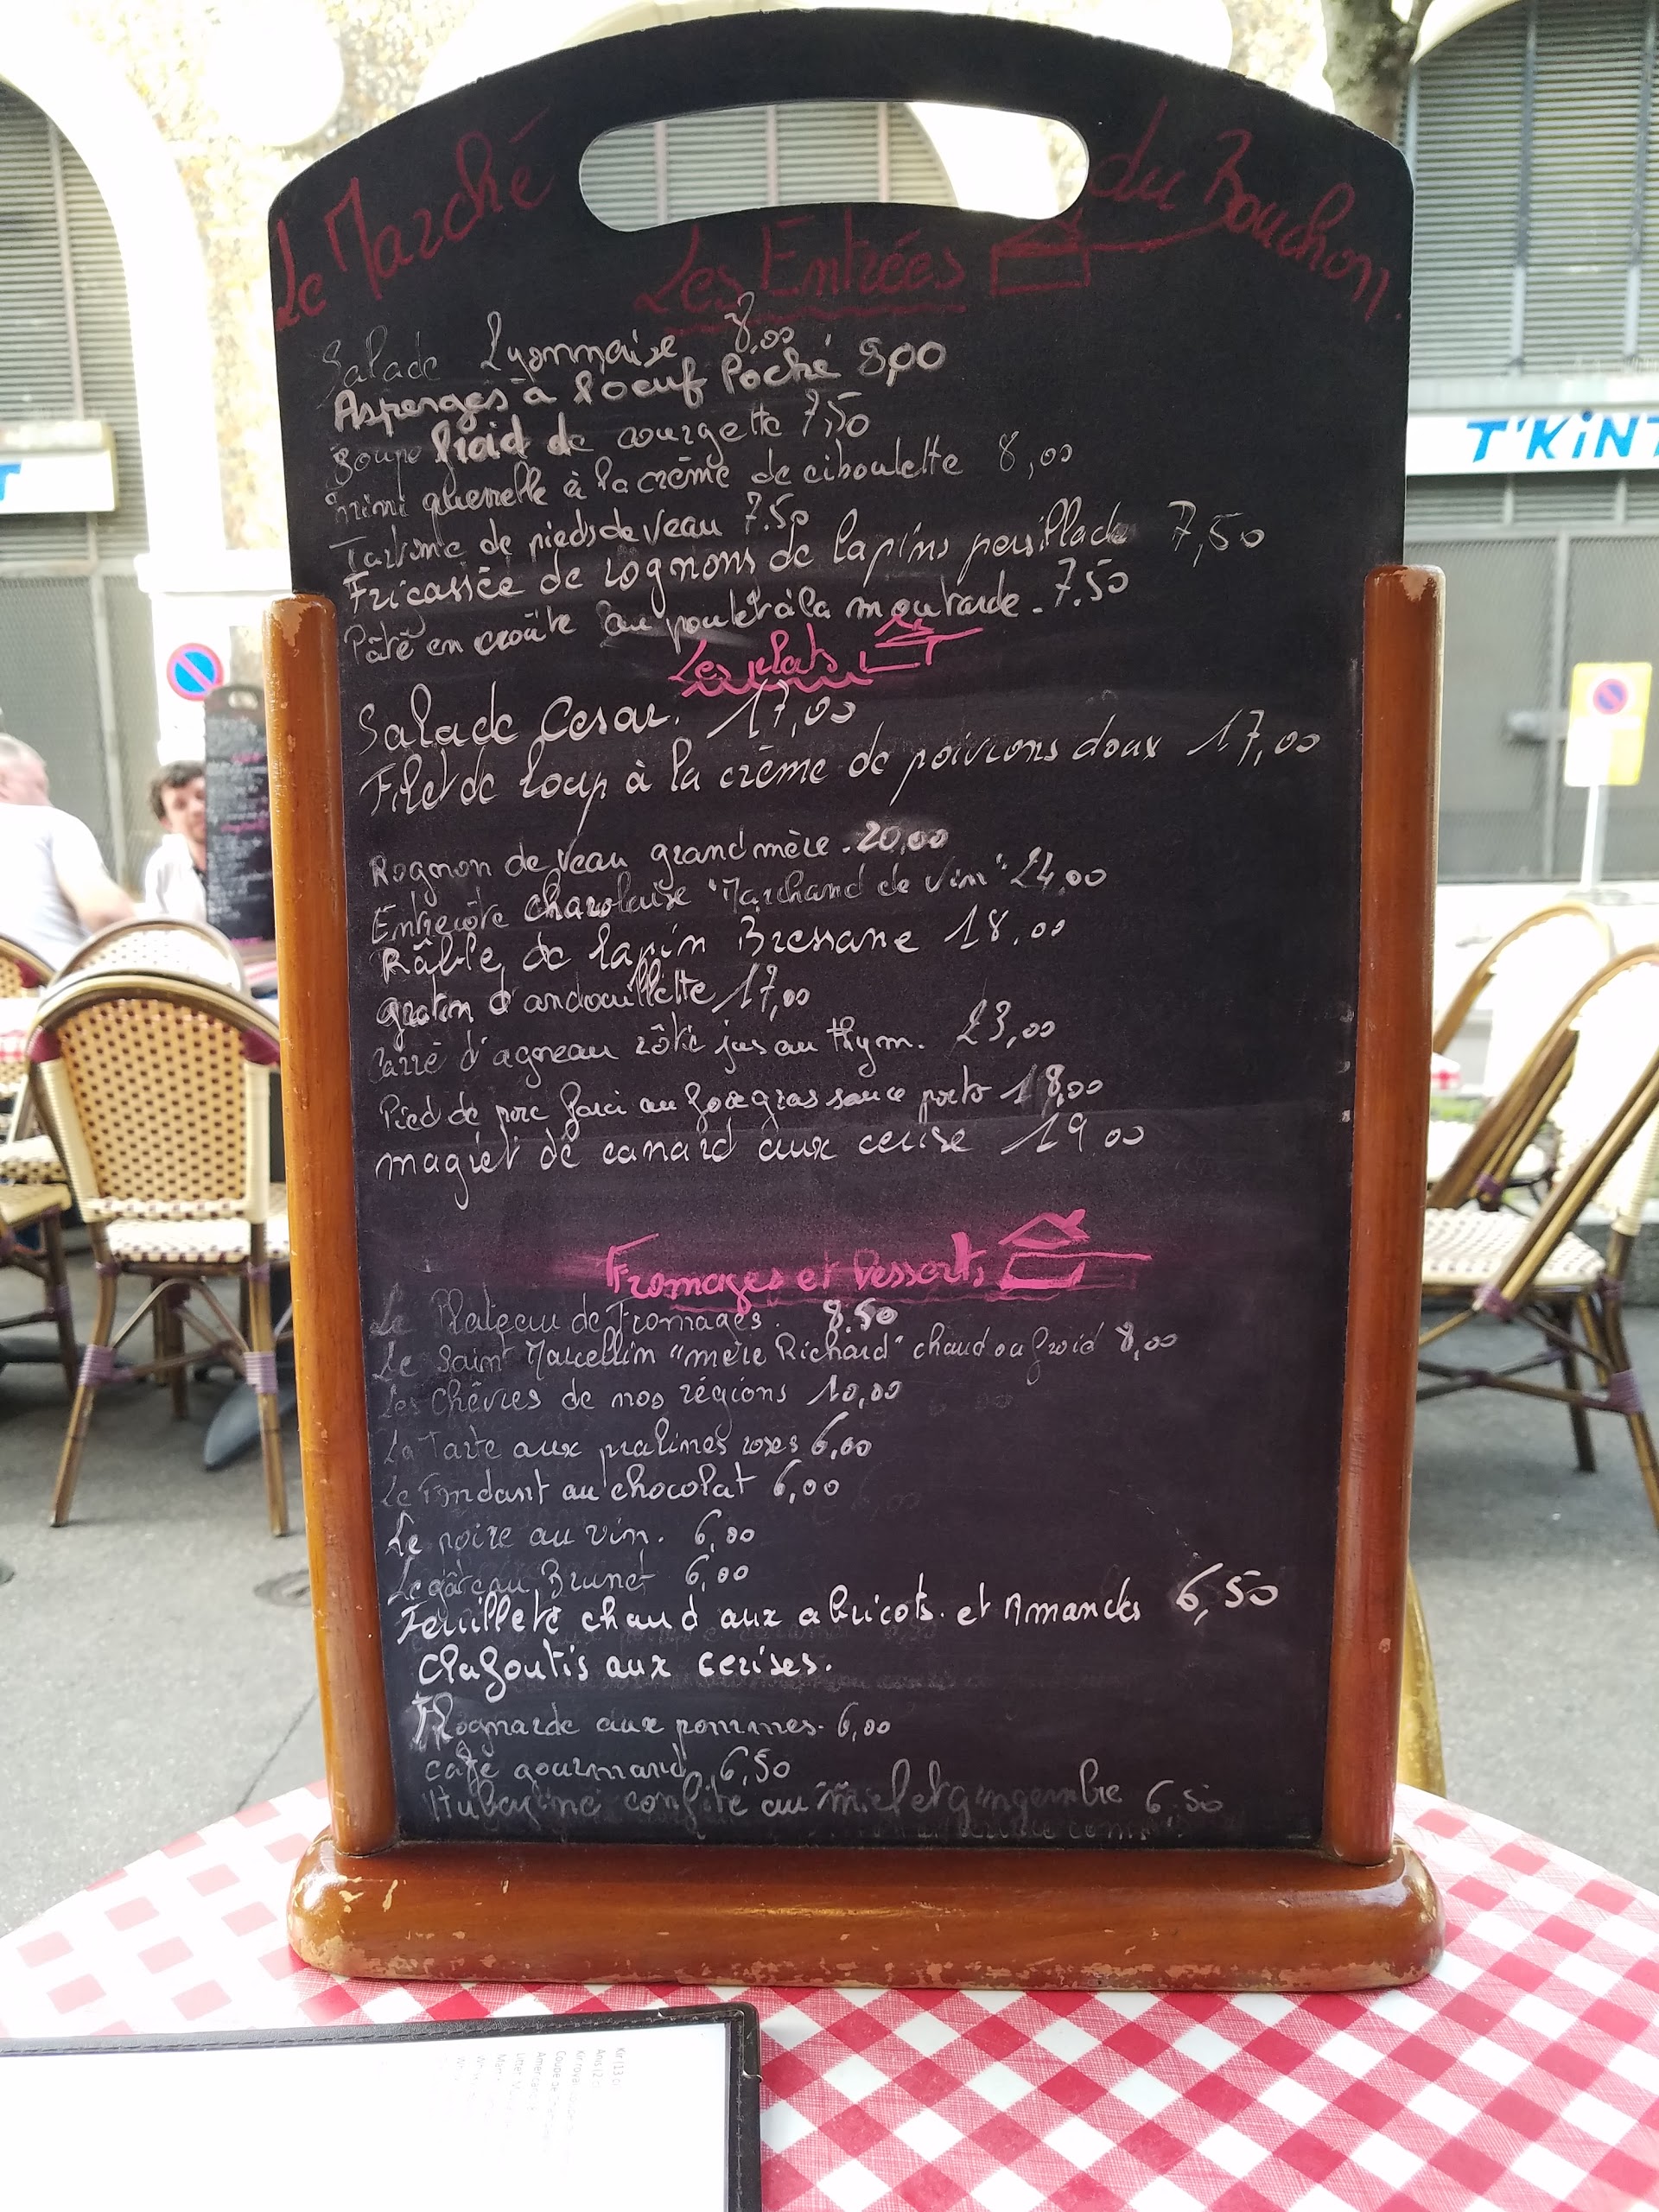 Le Marché du Bouchon.
Les Entrées
Salade Lyonnaise 8,00
Asperges à l'oeuf Poché 8,00
Soupe froid de courgette 7,50
mini quenelle à la crème de ciboulette 8,00
de pieds de veau 7.50
Fricassée de rognons de lapins persillade 7,50
Pâté en croûte au poulet à la moutarde - 7.50
Les plats
Salade Cesar. 17,00
Filet de loup à la crème de poivrons doux 17,00
Rognon de veau grand mère . 20,00
Entrecôte charolaise "Marchand de vin" 24,00
Râble de lapin Bressane 18,00
gratin d'andouillette 17,00
Carré d'agneau rôti jus au thym. 23,00
Pied de porc farci au foie gras sauce porto 18,00
magret de canard aux cerise 19.00
Fromages et Desserts
Le Plateau de Fromages. 8.50
Le Saint Marcellin "mère Richard" chaud ou froid 8,00
Les chèvres de nos régions 10,00
La Tarte aux pralines roses 6,00
Le Fondant au chocolat 6,00
Le poire au vin. 6,00
Le gâteau Brunet 6,00
Feuilleté chaud aux abricots. et Amandes 6,50
Clafoutis aux cerises.
Flognarde aux pommes - 6,00
café gourmand 6,50
confite au miel et gingembre 6.50
T'KiNT
T